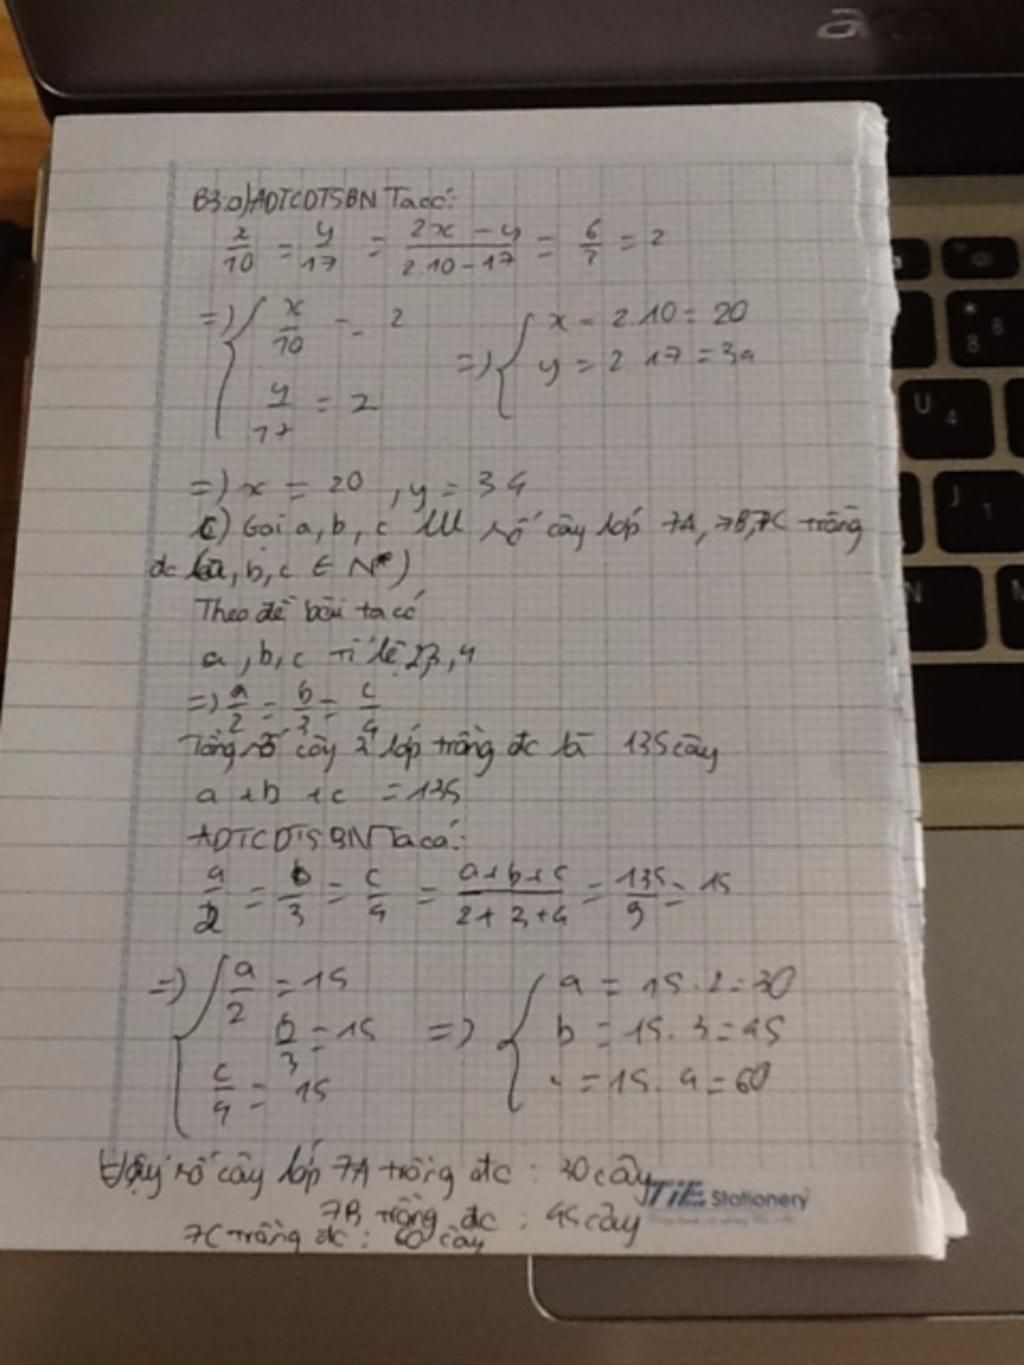 acer
B3:a) ADTCDTSBN Ta có:
x/10 = y/17 = 2x - y / 2.10-17 = 6/3 = 2
=> { x/10 = 2 => { x = 2.10 = 20
y/17 = 2 y = 2.17 = 34
=> x = 20, y = 34
c) Gọi a, b, c số cây lớp 7A, 7B, 7C trồng
đc (a, b, c ∈ N*)
Theo đề bài ta có
a, b, c tỉ lệ 2,3,4
=> a/2 = b/3 = c/4
Tổng số cây 3 lớp trồng đc là 135 cây
a + b + c = 135
ADTCDTSBN Ta có:
a/2 = b/3 = c/4 = a+b+c / 2+3+4 = 135/9 = 15
=> { a/2 = 15 => { a = 15.2 = 30
b/3 = 15 b = 15.3 = 45
c/4 = 15 = 15.4 = 60
Vậy số cây lớp 7A trồng đc : 30 cây
7B trồng đc : 45 cây
7C trồng đc : 60 cây
TiE Stationery
* 8
8
U 4
J 1
N